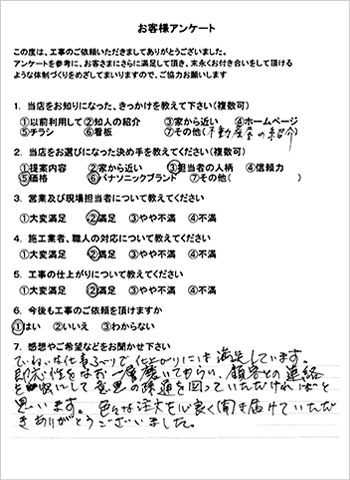 お客様アンケート
この度は、工事のご依頼いただきましてありがとうございました。
アンケートを参考に、お客さまにさらに満足して頂き、末永くお付き合いをして頂ける
ような体制づくりをめざしてまいりますので、ご協力お願いします
1. 当店をお知りになった、きっかけを教えて下さい(複数可)
①以前利用して②知人の紹介 ③家から近い ④ホームページ
⑤チラシ ⑥看板 ⑦その他(不動産屋の紹介)
2. 当店をお選びになった決め手を教えてください(複数可)
①提案内容 ②家から近い ③担当者の人柄 ④信頼力
⑤価格 ⑥パナソニックブランド ⑦その他( )
3. 営業及び現場担当者について教えてください
①大変満足 ②満足 ③やや不満 ④不満
4. 施工業者、職人の対応について教えてください
①大変満足 ②満足 ③やや不満 ④不満
5. 工事の仕上がりについて教えてください
①大変満足 ②満足 ③やや不満 ④不満
6. 今後も工事のご依頼を頂けますか
①はい ②いいえ ③わからない
7. 感想やご希望などをお聞かせ下さい
ていねいな仕事ぶりで仕上がりには満足しています。
即応性をなお一層磨いてもらい、顧客との連絡
を密にして意思の疎通を図っていただければと
思います。色々な注文を心良く聞き届けていただ
きありがとうございました。